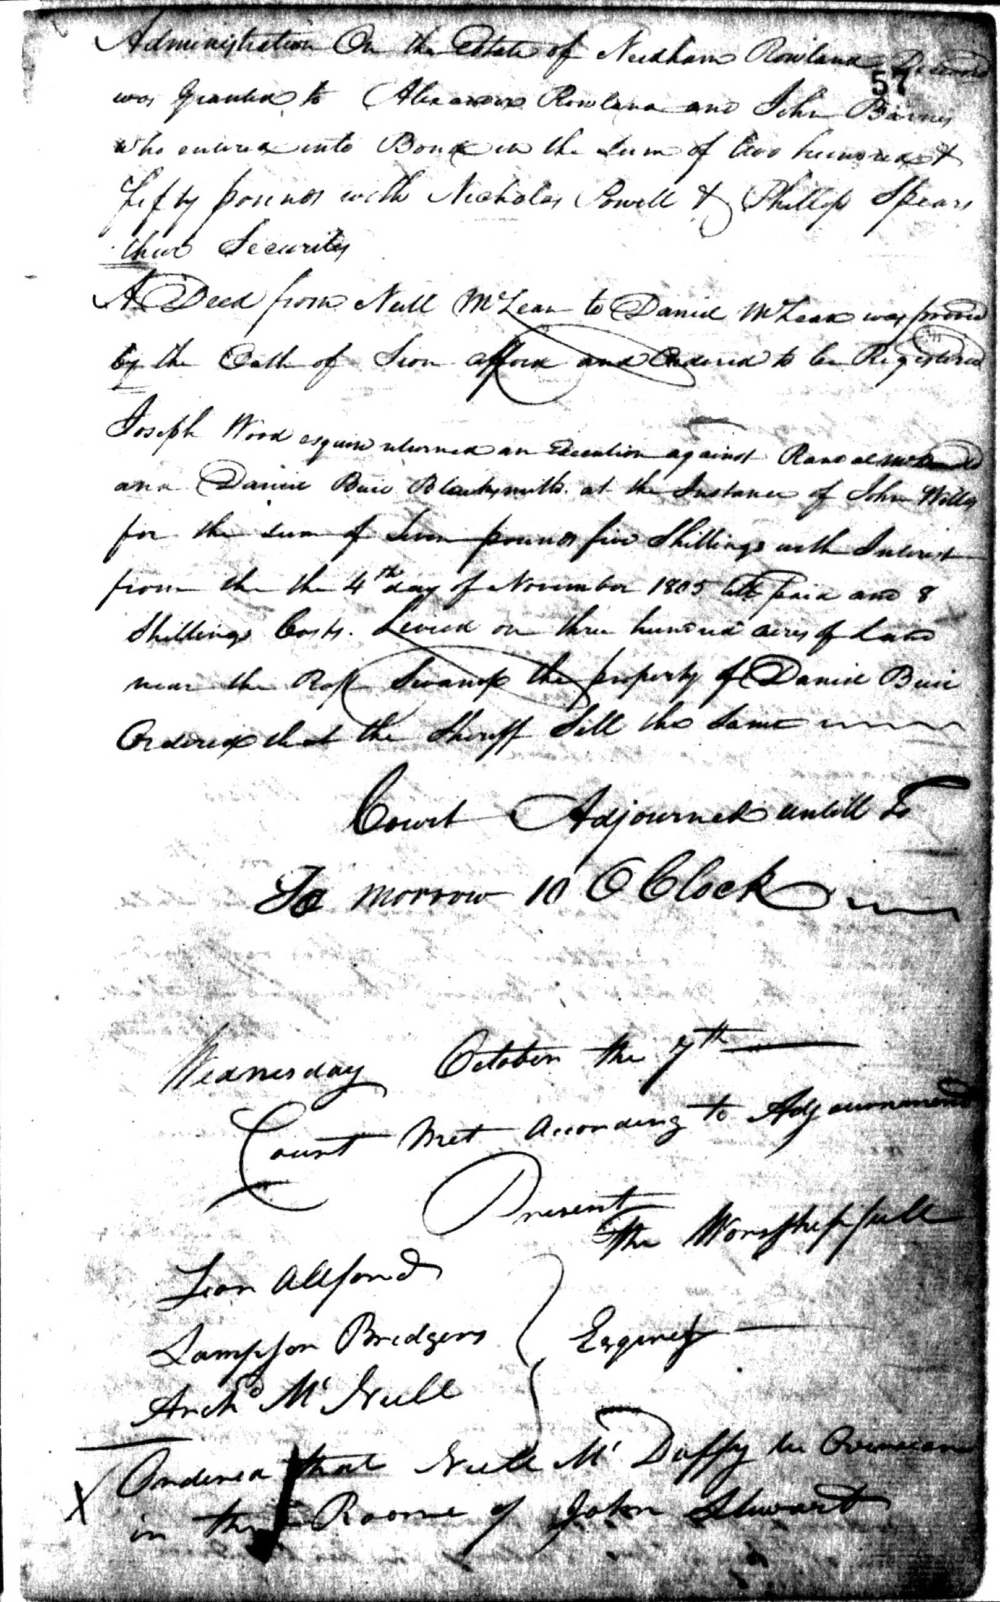 57
Administration On the Estate of Needham Rowland Deceased
was Granted to Alexander Rowland and John Barnes
who entered into Bond in the Sum of two hundred &
Fifty pounds with Nicholas Powell & Phillip Spears
their Security
A Deed from Neill McLean to Daniel McLean was proved
by the Oath of Sion Alford and Ordered to be Registered
Joseph Wood esquire returned an Execution against
and Daniel Buie Blacksmith at the Instance of John Willis
for the sum of Seven pounds five Shillings with Interest
from the the 4th day of November 1805 till paid and 8
Shillings Costs. Levied on three hundred acres of Land
near the Raft Swamp the property of Daniel Buie
Ordered that the Sheriff Sell the Same
Court Adjourned untill To
To morrow 10 O Clock
Wednesday October the 7th
Court Met According to Adjournment
Present
The Worshipfull
Sion Allford
Sampson Bridgers
Archd McNeill
Esquires
X Ordered that Neill McDuffy be Overseer
in the Roome of John Stewart